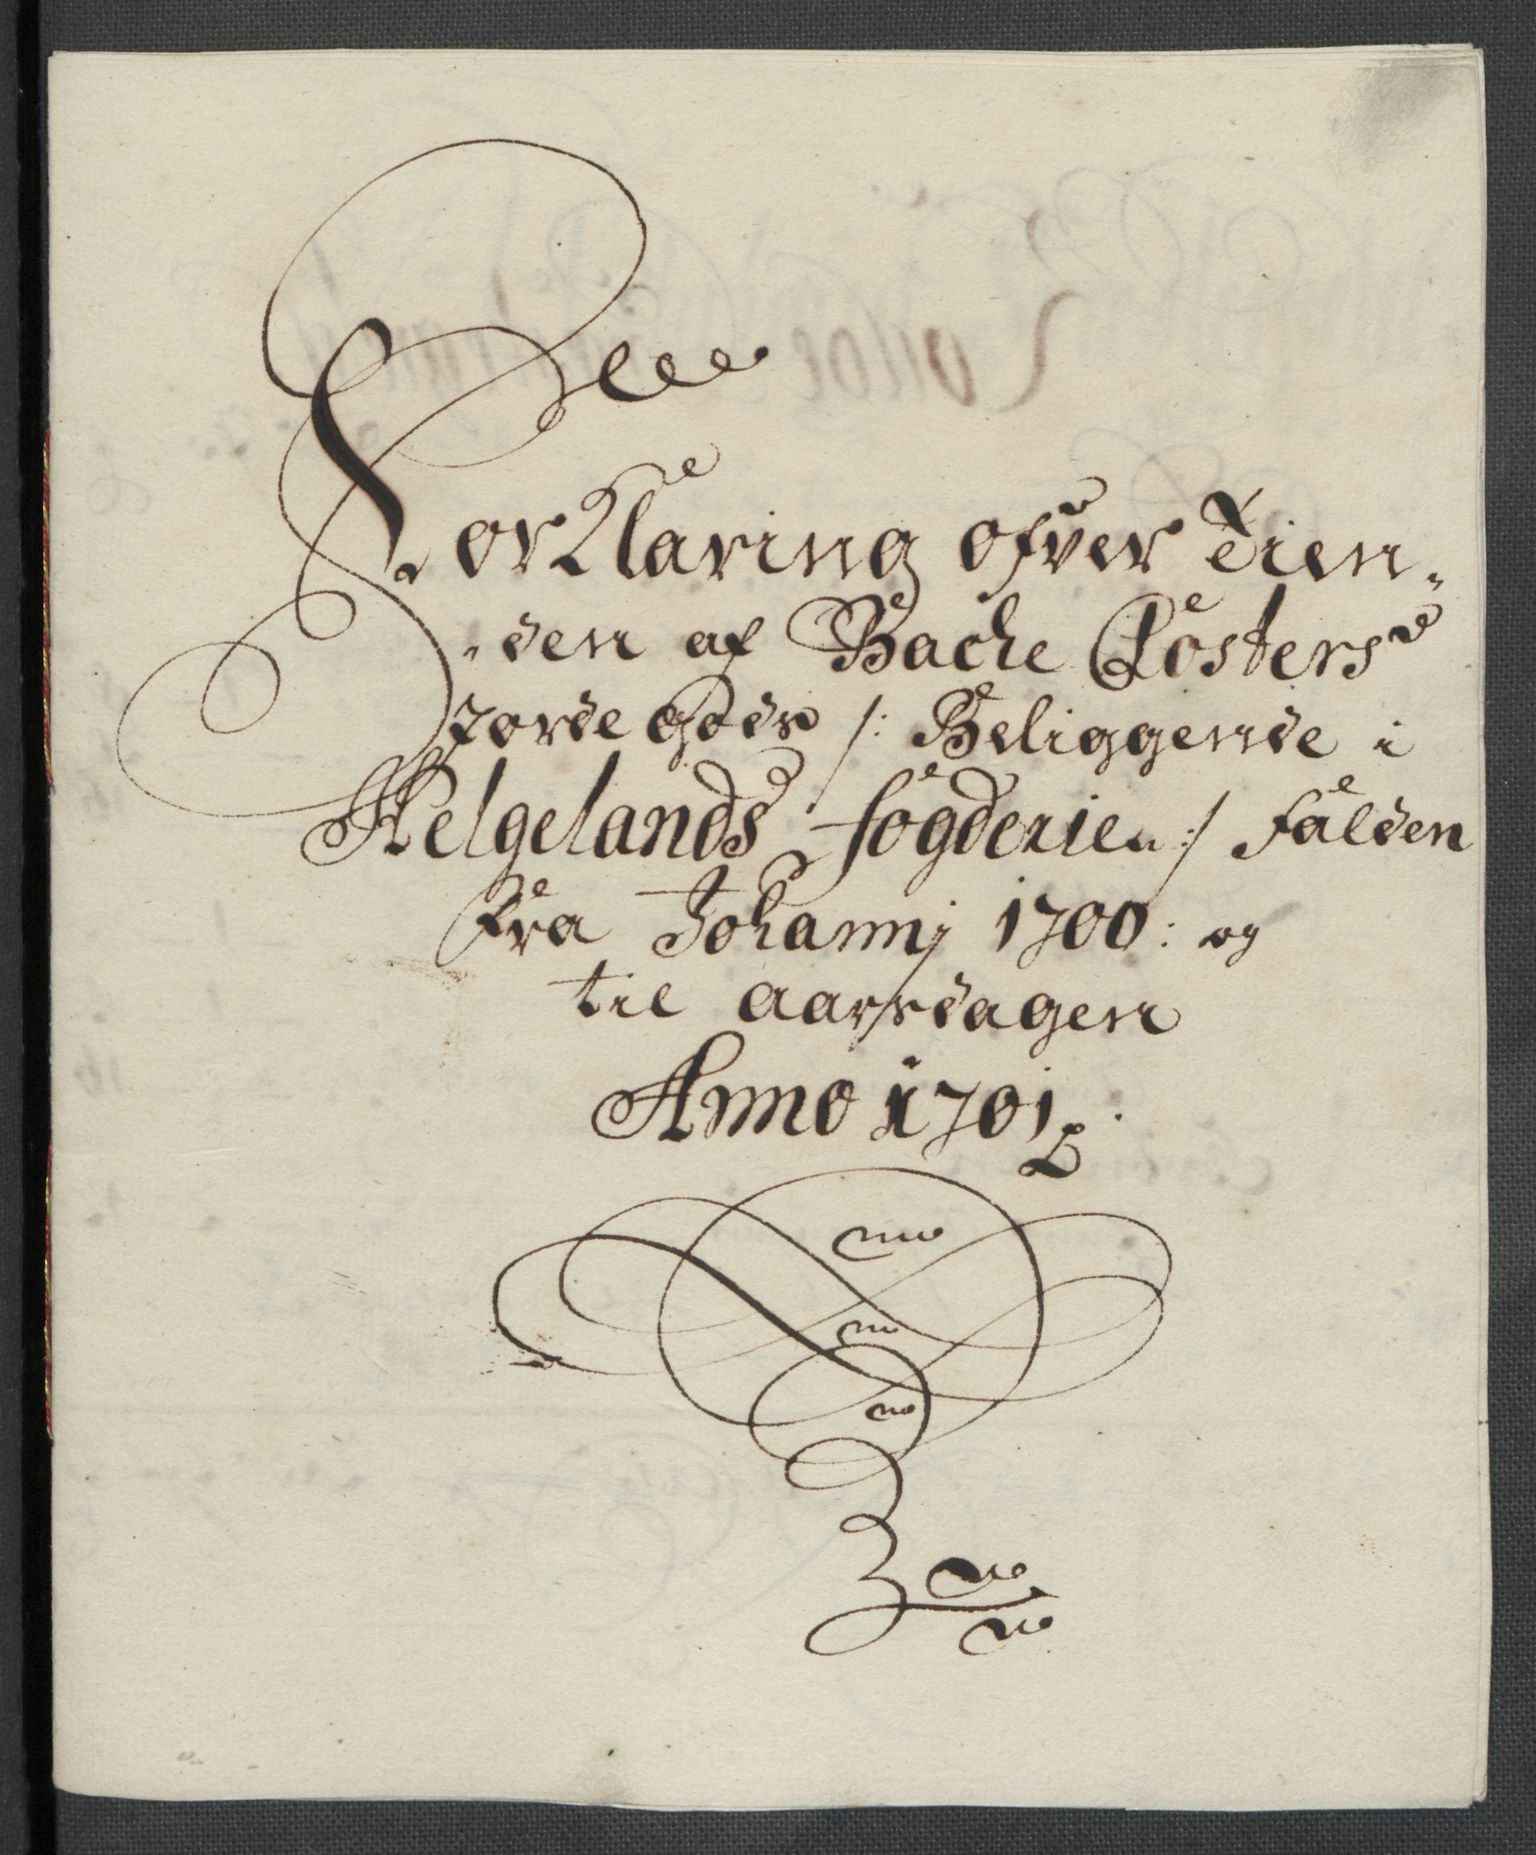 Forklaring ofver Tien-
den af Backe Closters
Jorde godz /: Beliggende i
Helgelands fögderie :/ falden
fra Johannj 1700: og
til aarsdagen
Anno 1701